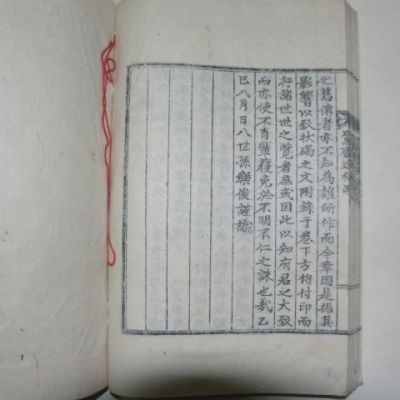 之舊傳者亦不知為誰所作而今幸因是摭其
影響以致狀碣之文附錄于卷下方將付印而
行諸世世之覽者庶或因此以知府君之大致
而亦使不肖輩獲免於不明不仁之誅也哉乙
巳八月日八世孫樂俊謹識